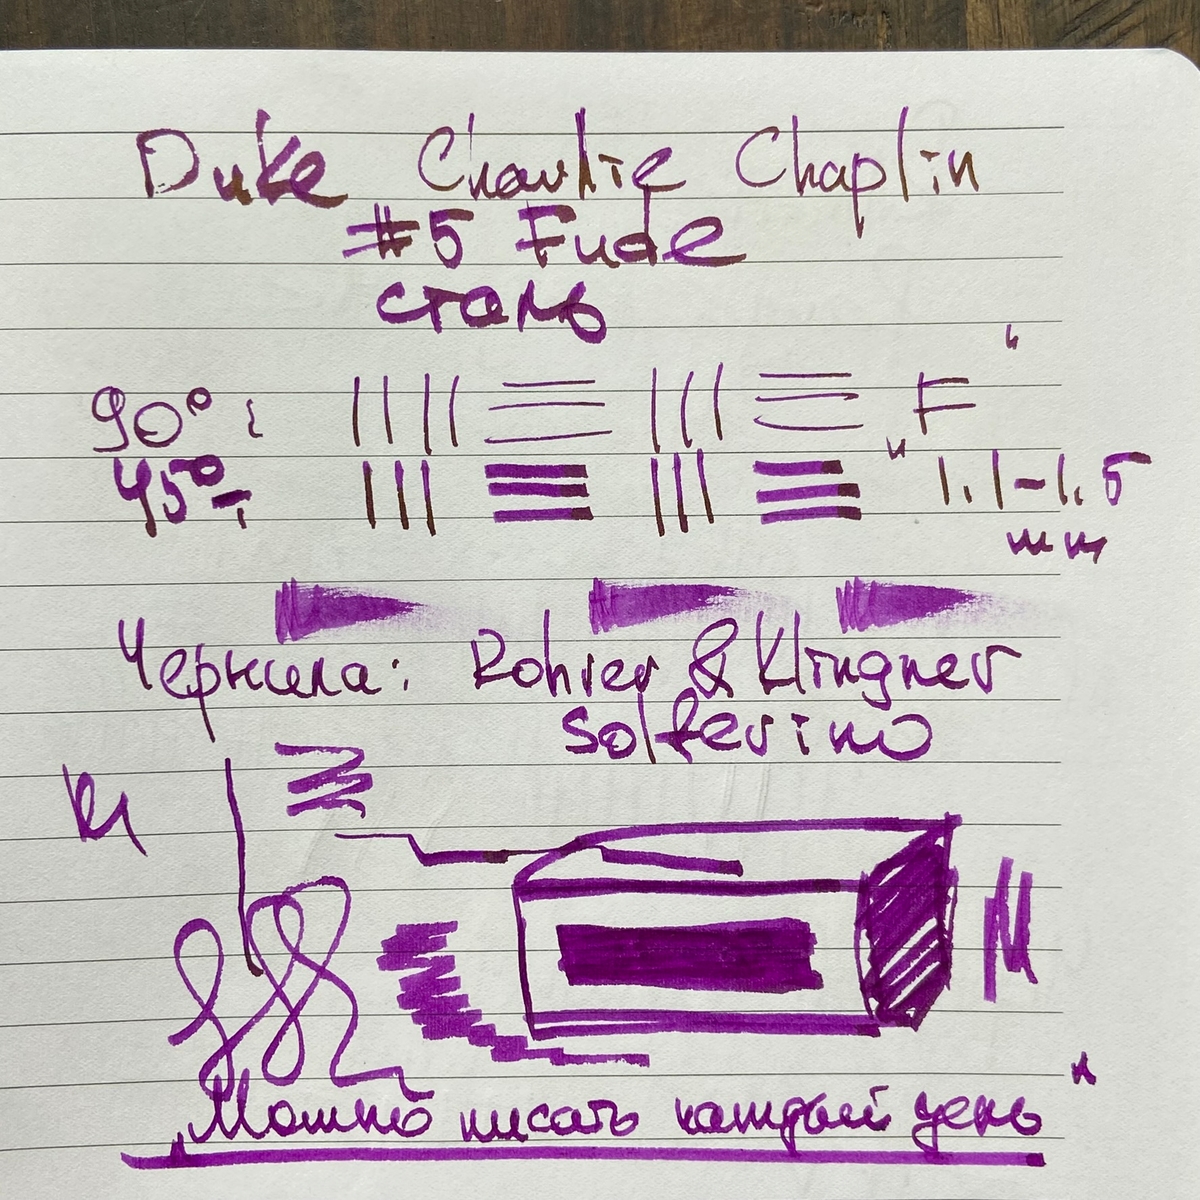 Duke Charlie Chaplin
#5 Fude
сталь
90°: F
45°: 1.1-1.5
mm
Чернила: Rohrer & Klingner
Solferino
Можно писать каждый день